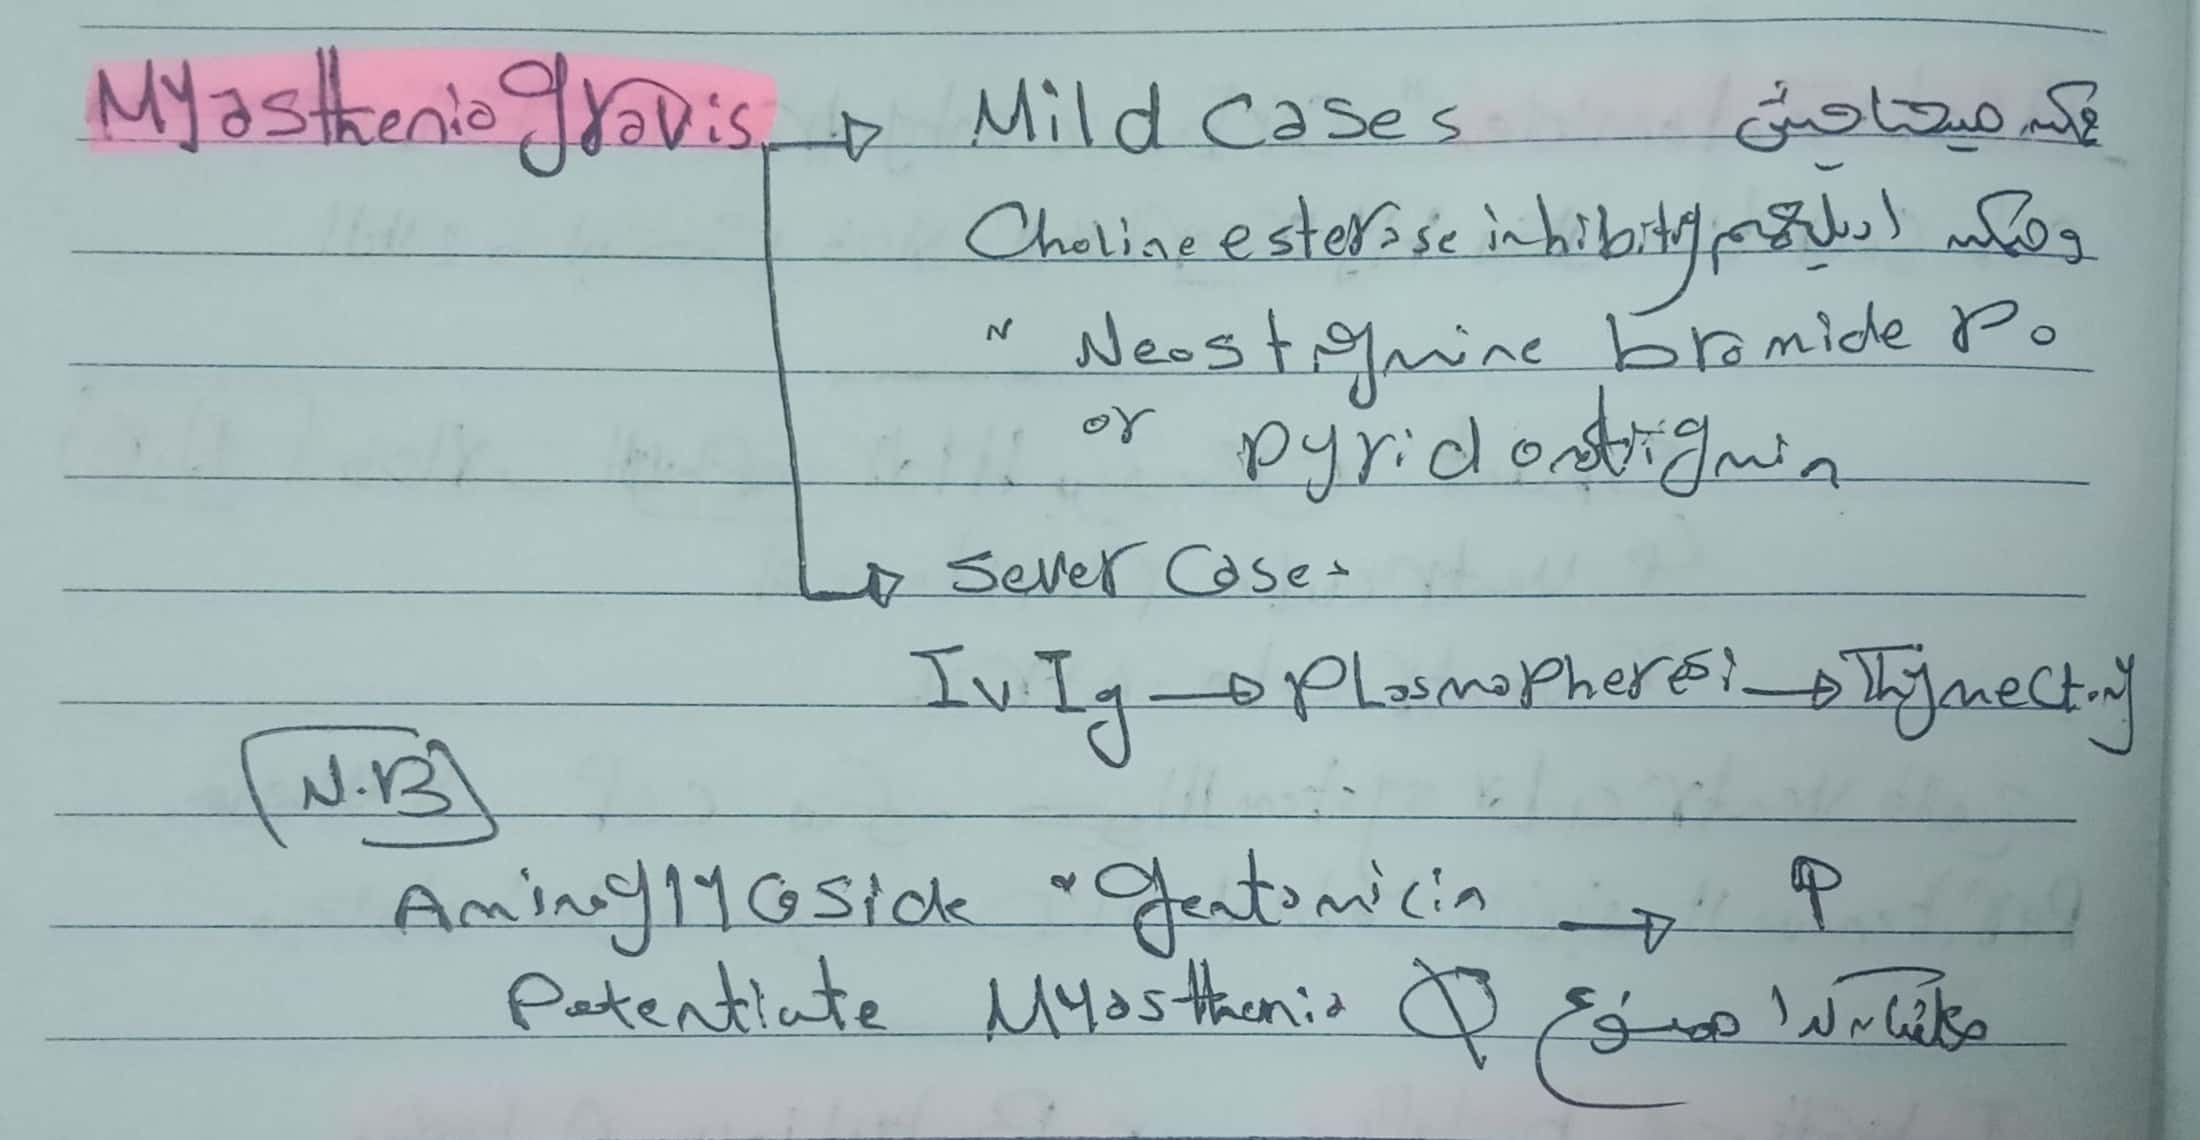 Myasthenia gravis → Mild cases
Choline esterase inhibity
" Neostigmine bromide Po
or pyridostigmin
→ Sever Cases
Iv Ig → Plasmapheresi → Thymectomy
N.B
Aminoglycoside " Gentamicin →
Potentiate Myasthenia ممنوع